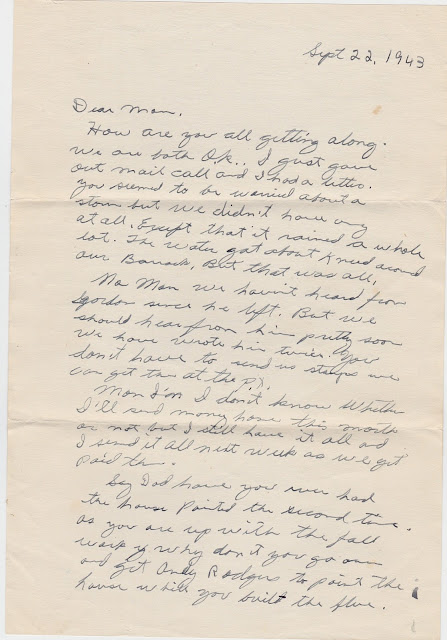 Sept 22, 1943
Dear Mom.
How are you all getting along.
We are both O.K.. I just gave
out mail call and I had a letter.
you seemed to be worried about a
storm but we didn't have any
at all. Except that it rained a whole
lot. The water got about knee around
our Barracks, But that was all.
No Mom we havn't heard from
Gordon since he left. But we
should hear from him pretty soon
we have wrote him twice. You
don't have to send us stamps we
can get them at the P.X.
Mom I'm I don't know Whether
I'll send money home this month
or not but I still have it all and
I send it all next week as we get
paid then.
Say Dad have you ever had
the house painted the second time.
as you are up with the fall
work why don't you go on
and get Andy Rodgers to paint the
house while you built the flue.